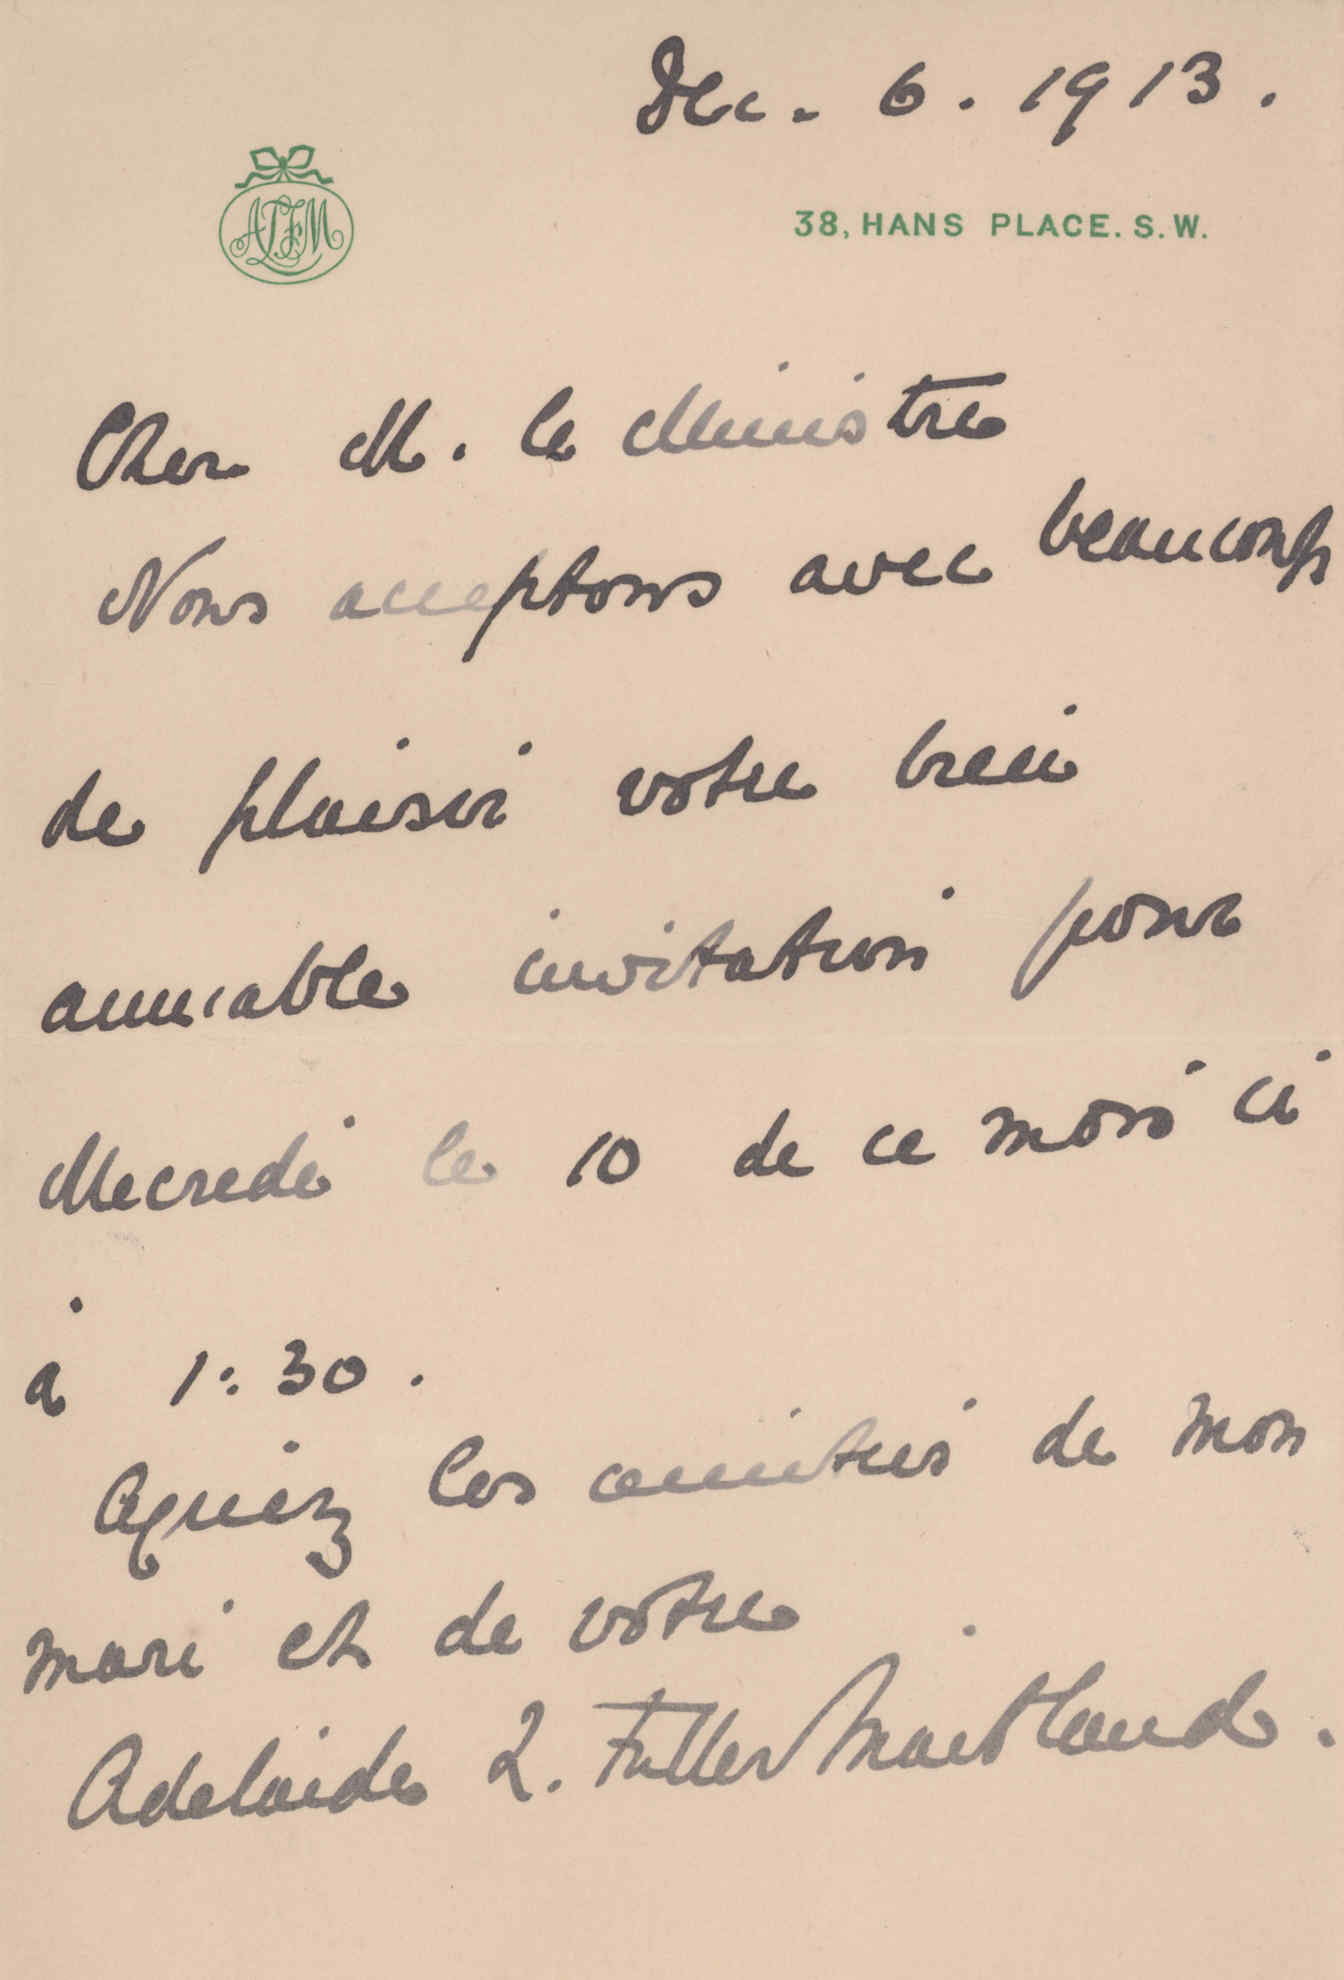 Dec. 6. 1913.
ALFM
38, HANS PLACE. S.W.
Cher M. le Ministre
Nous acceptons avec beaucoup
de plaisir votre bien
aimiable invitation pour
Mecredi le 10 de ce mois ci
à 1:30.
Agriez les amitiés de mon
mari et de votre
Adelaide L. Fuller Maitland.